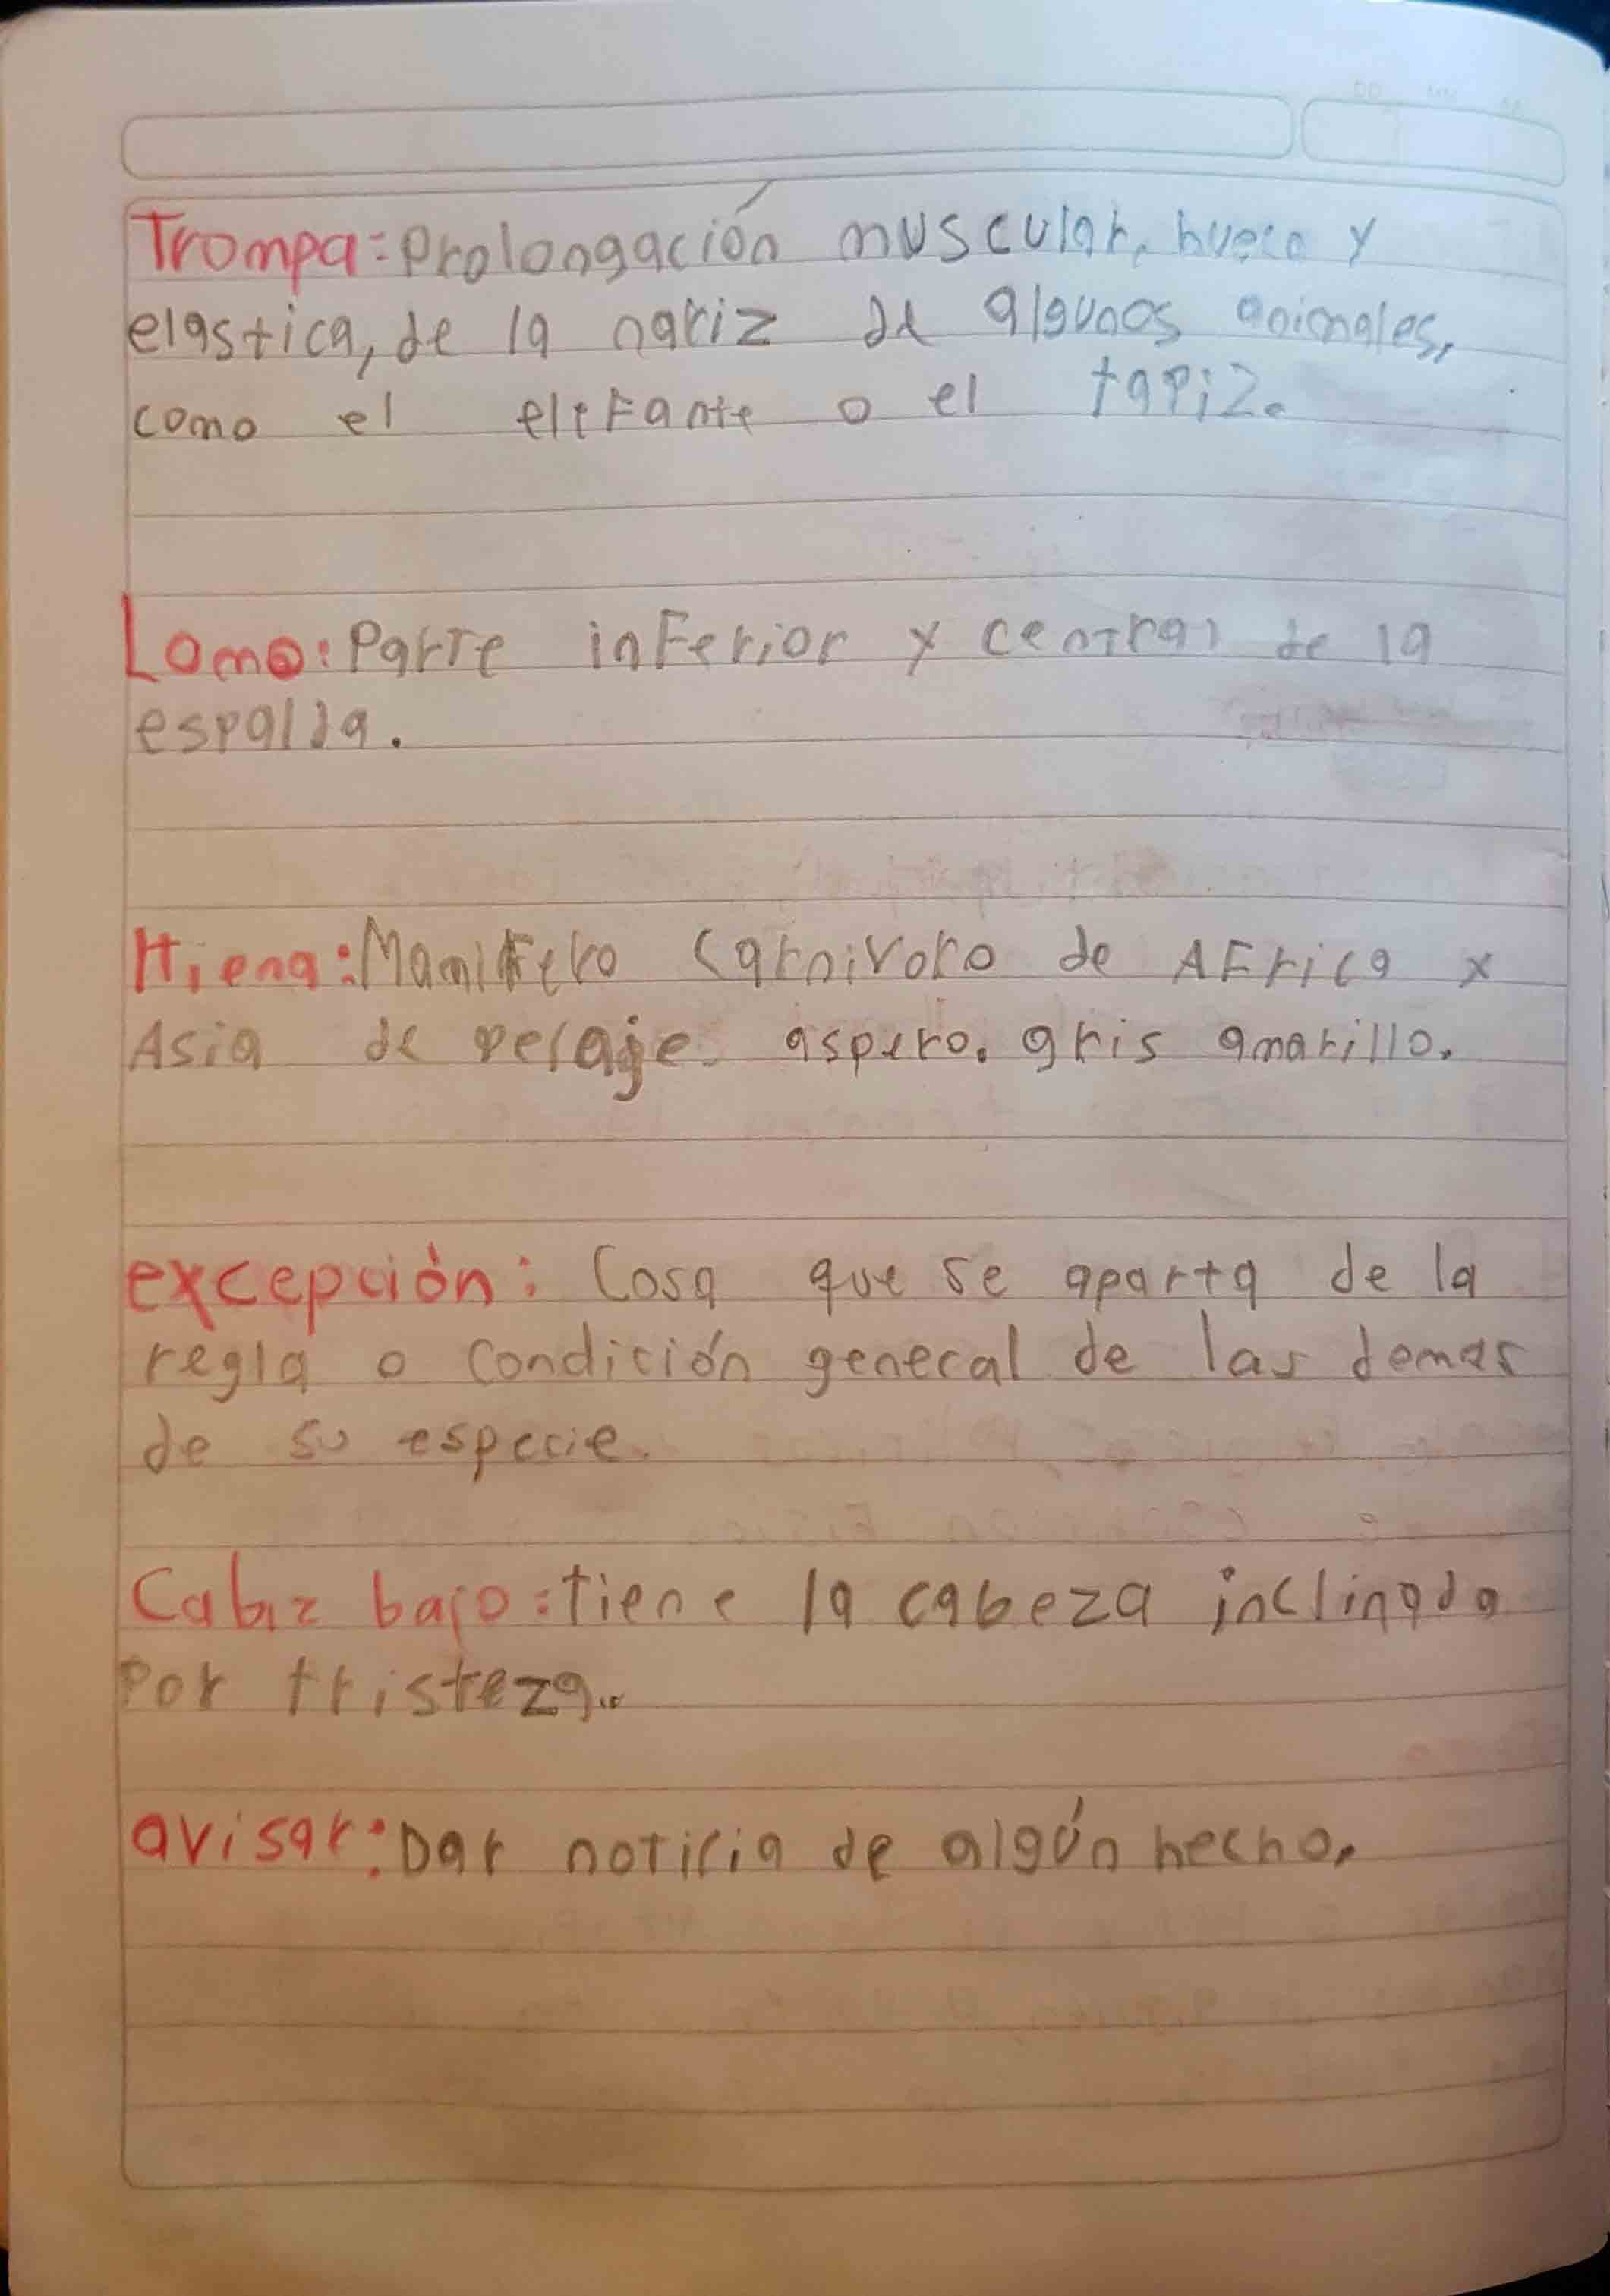 Trompa: Prolongación muscular, hueco y
elastica, de la nariz de algunos animales,
como el elefante o el tapiz.
Lomo: Parte inferior y central de la
espalda.
Hiena: Mamifero carnivoro de Africa y
Asia de pelaje aspero. gris amarillo.
excepción: Cosa que se aparta de la
regla o condición general de las demas
de su especie.
Cabiz bajo: tiene la cabeza inclinada
Por tristeza..
avisar: Dar noticia de algún hecho.